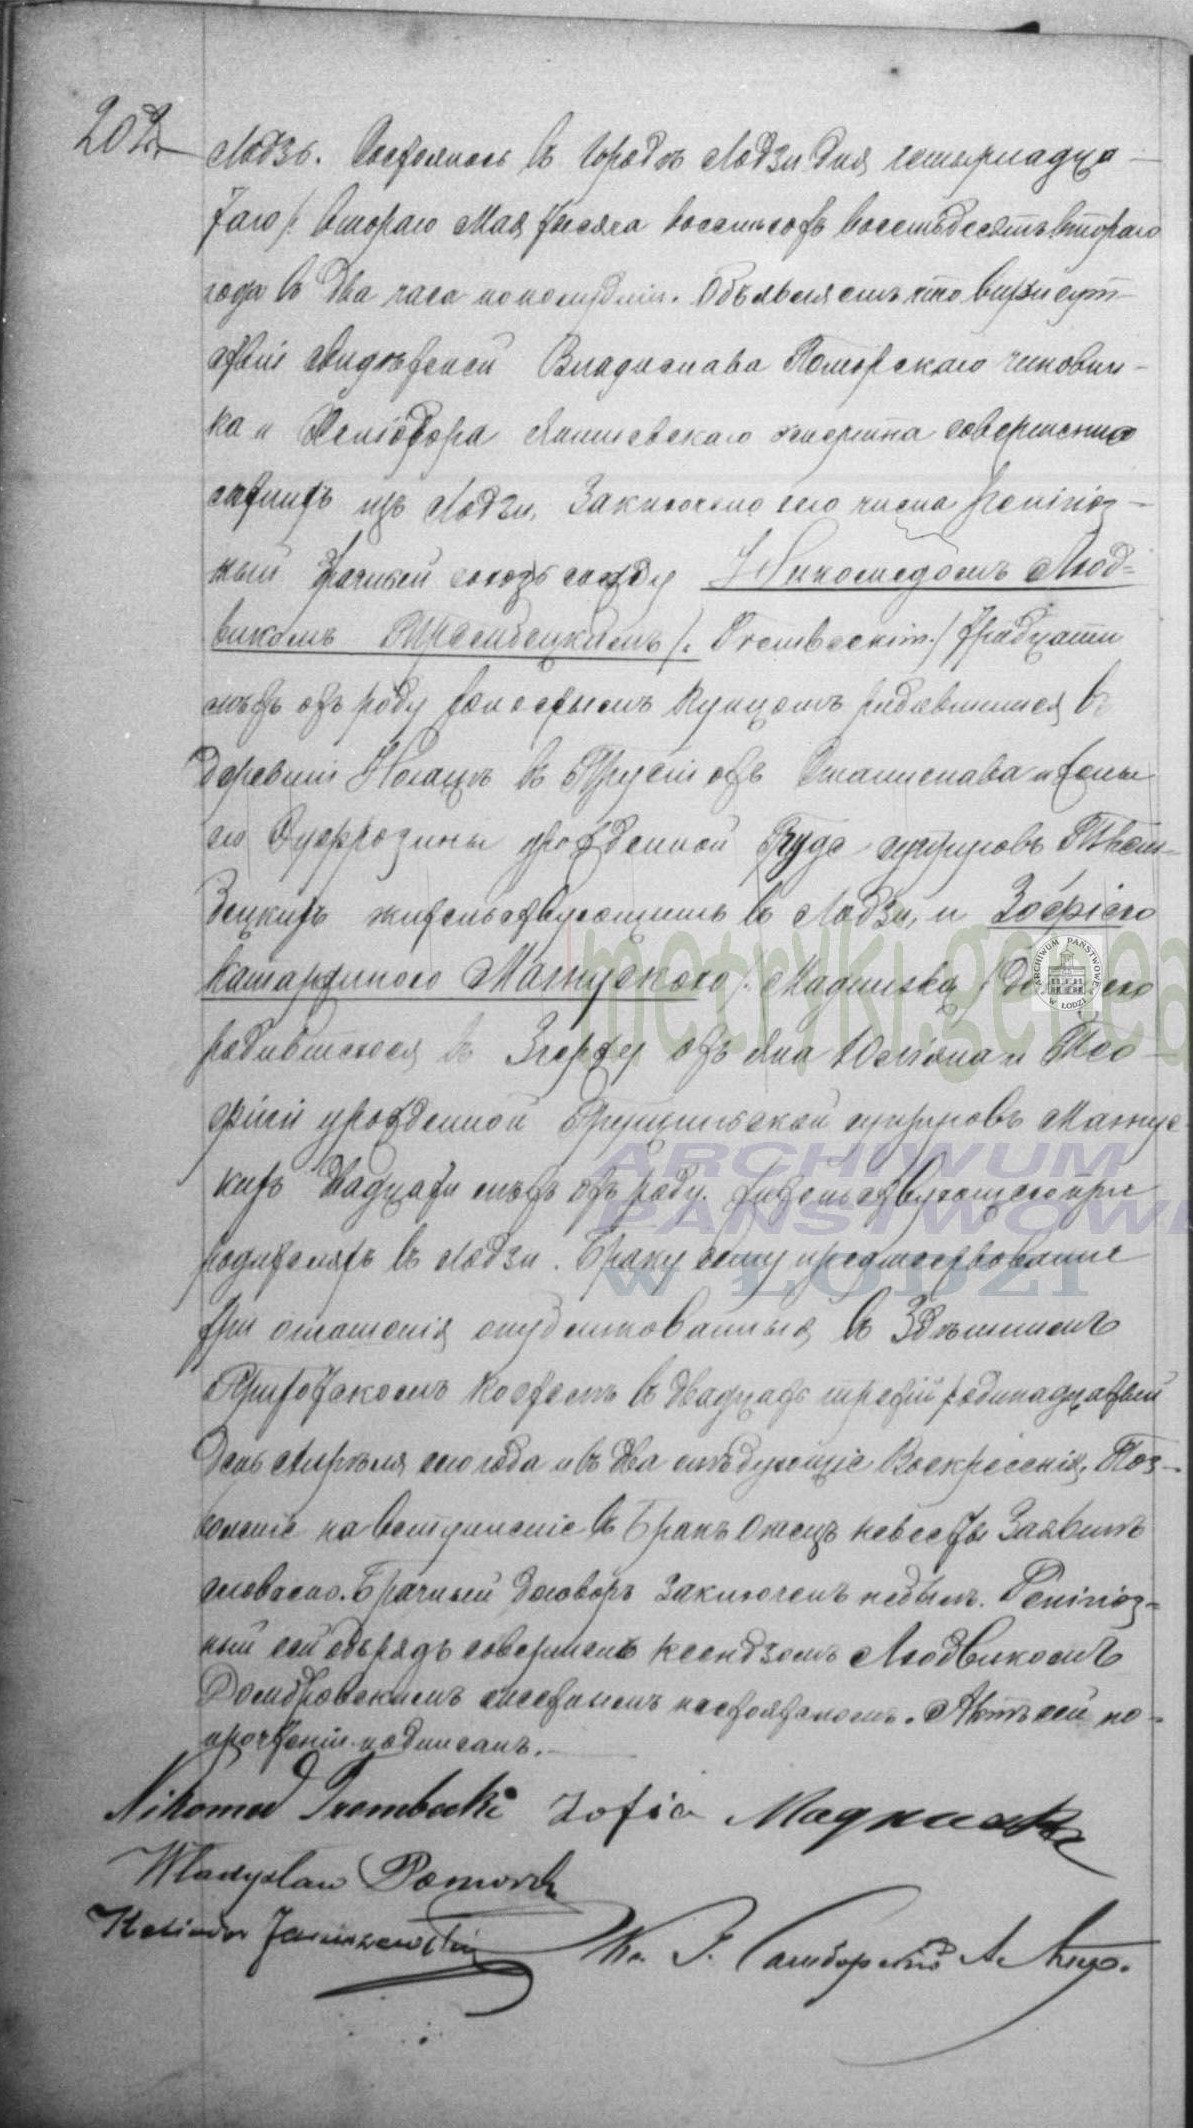 202
Лодзь. Состоялось въ городѣ Лодзи дня четырнадца-
таго /: втораго Мая тысяча восемьсотъ восемьдесятъ втораго
года въ два часа пополудни. Объявляемъ что въ присут-
ствіи свидѣтелей Владислава Поморскаго чиновни-
ка и Хеліодора Янишевскаго совершенно
лѣтнихъ изъ Лодзи, заключено сего числа религіоз-
ный брачный союзъ между Никомедомъ Люд-
викомъ Трембецкимъ /: Trembeckim :/ тридцати
лѣтъ отъ роду холостымъ купцомъ родившимся въ
деревни въ Пруссіи отъ Станислава и жены
его Ефрозины урожденной супруговъ Трем-
бецкихъ жительствующимъ въ Лодзи, и Зофіею
Катаржиною Магнускою /:
родившеюся въ Згержу отъ Яна Юліана и Тео-
филіи урожденной супруговъ Магнус-
кихъ двадцати лѣтъ отъ роду. жительствующею при
родителяхъ въ Лодзи. Браку сему предшествовали
три оглашенія опубликованныя въ здѣшнемъ
Приходскомъ костелѣ въ двадцать третій /: одинадцатый
день Апрѣля сего года и въ два слѣдующіе воскресенія, Поз-
воленіе на вступленіе въ бракъ отецъ невесты заявилъ
словесно. Брачный договоръ заключенъ небылъ. Религіоз-
ный сей обрядъ совершенъ ксендзомъ Людвикомъ
Домбровскимъ мѣстнымъ настоятелемъ. Актъ сей по
прочтеніи подписанъ.
Nikomed Trembecki Zofia
Władysław Pomorski
Heliodor Janiszewski